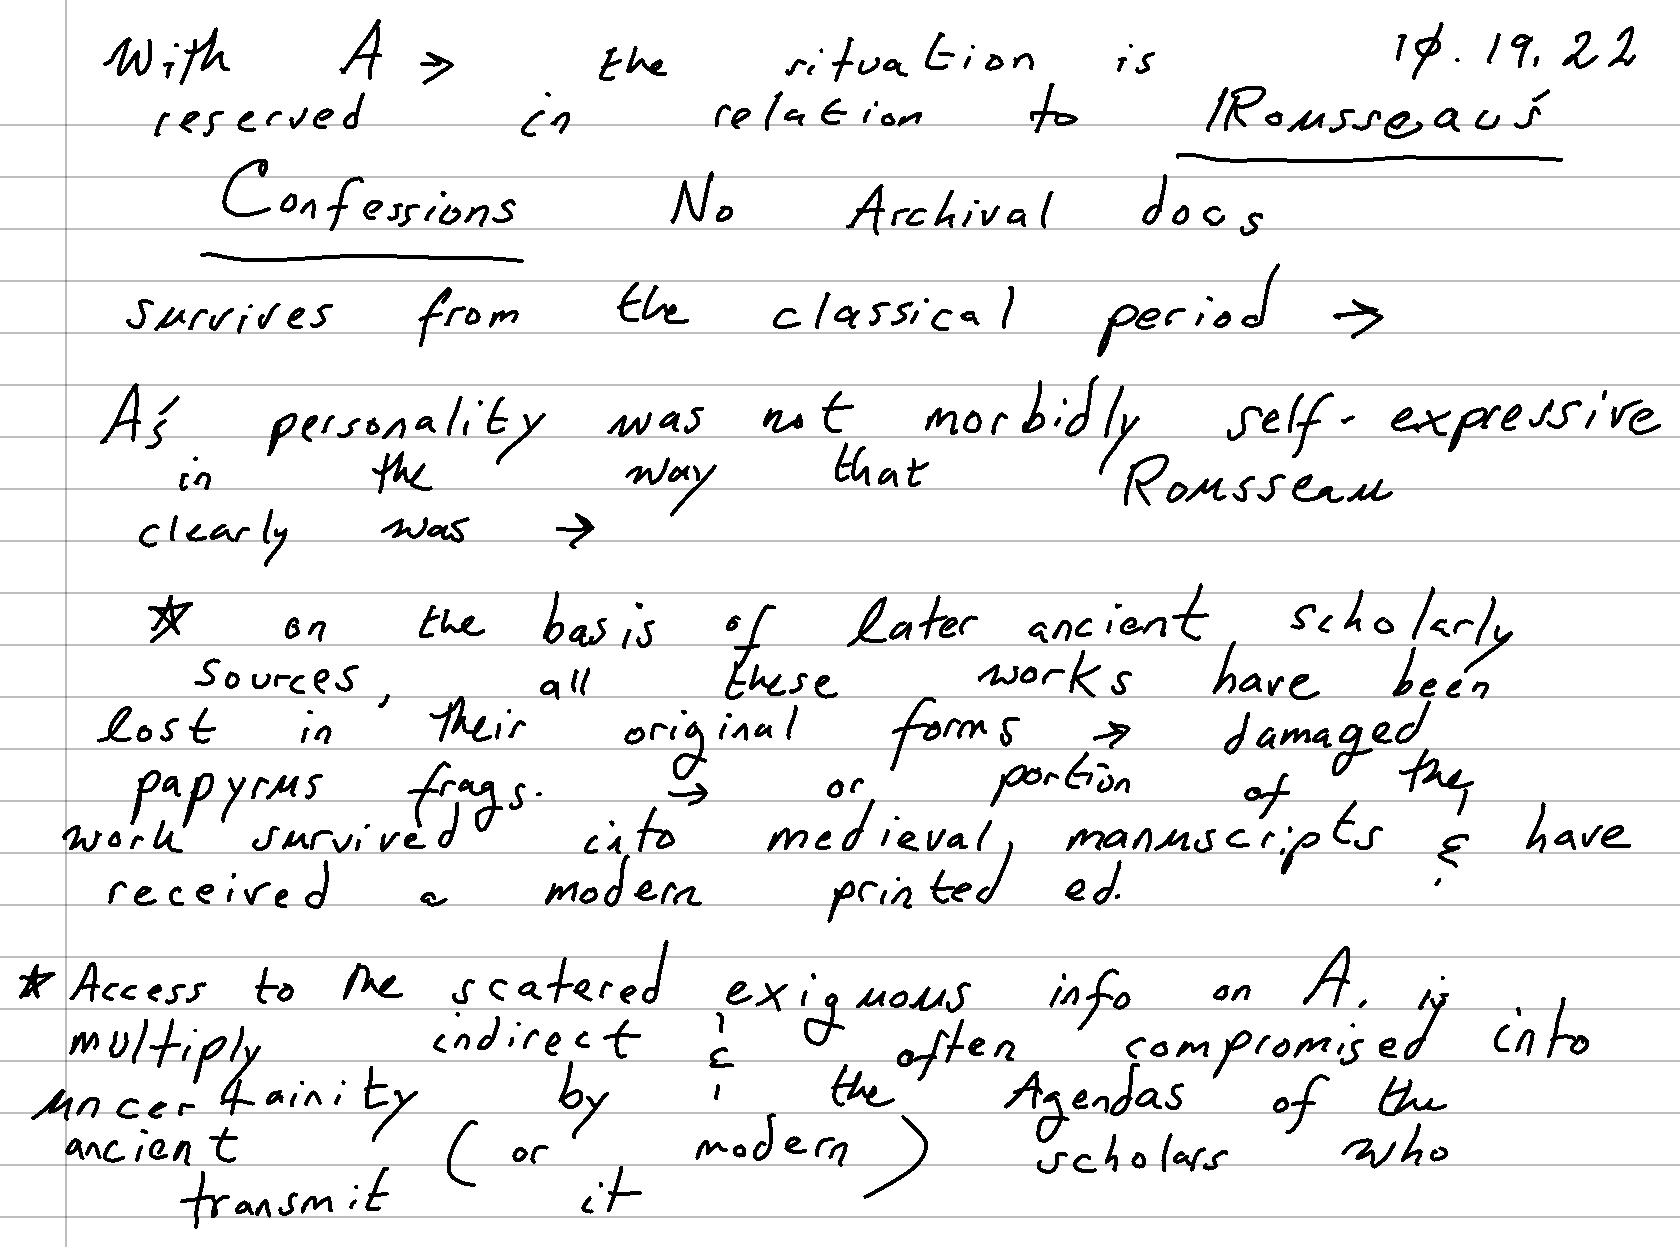 With A → the situation is 10.19.22
reserved in relation to Rousseau's
Confessions No Archival docs
survives from the classical period →
A's personality was not morbidly self-expressive
in the way that Rousseau
clearly was →
☆ on the basis of later ancient scholarly
sources, all these works have been
lost in their original forms → damaged
papyrus frags. → or portion of the
work survived into medieval manuscripts & have
received a modern printed ed.
☆ Access to the scatered exiguous info on A. is
multiply indirect & often compromised into
uncertainity by the Agendas of the
ancient (or modern) scholars who
transmit it